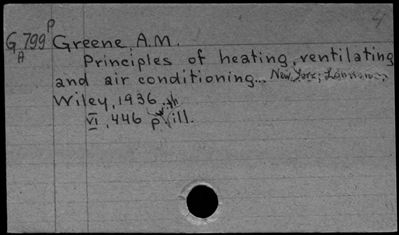 P
G 799 Greene, A.M.
A Principles of heating, ventilating
and air conditioning... New York; London,
Wiley, 1936.
VI, 446 p. ill.